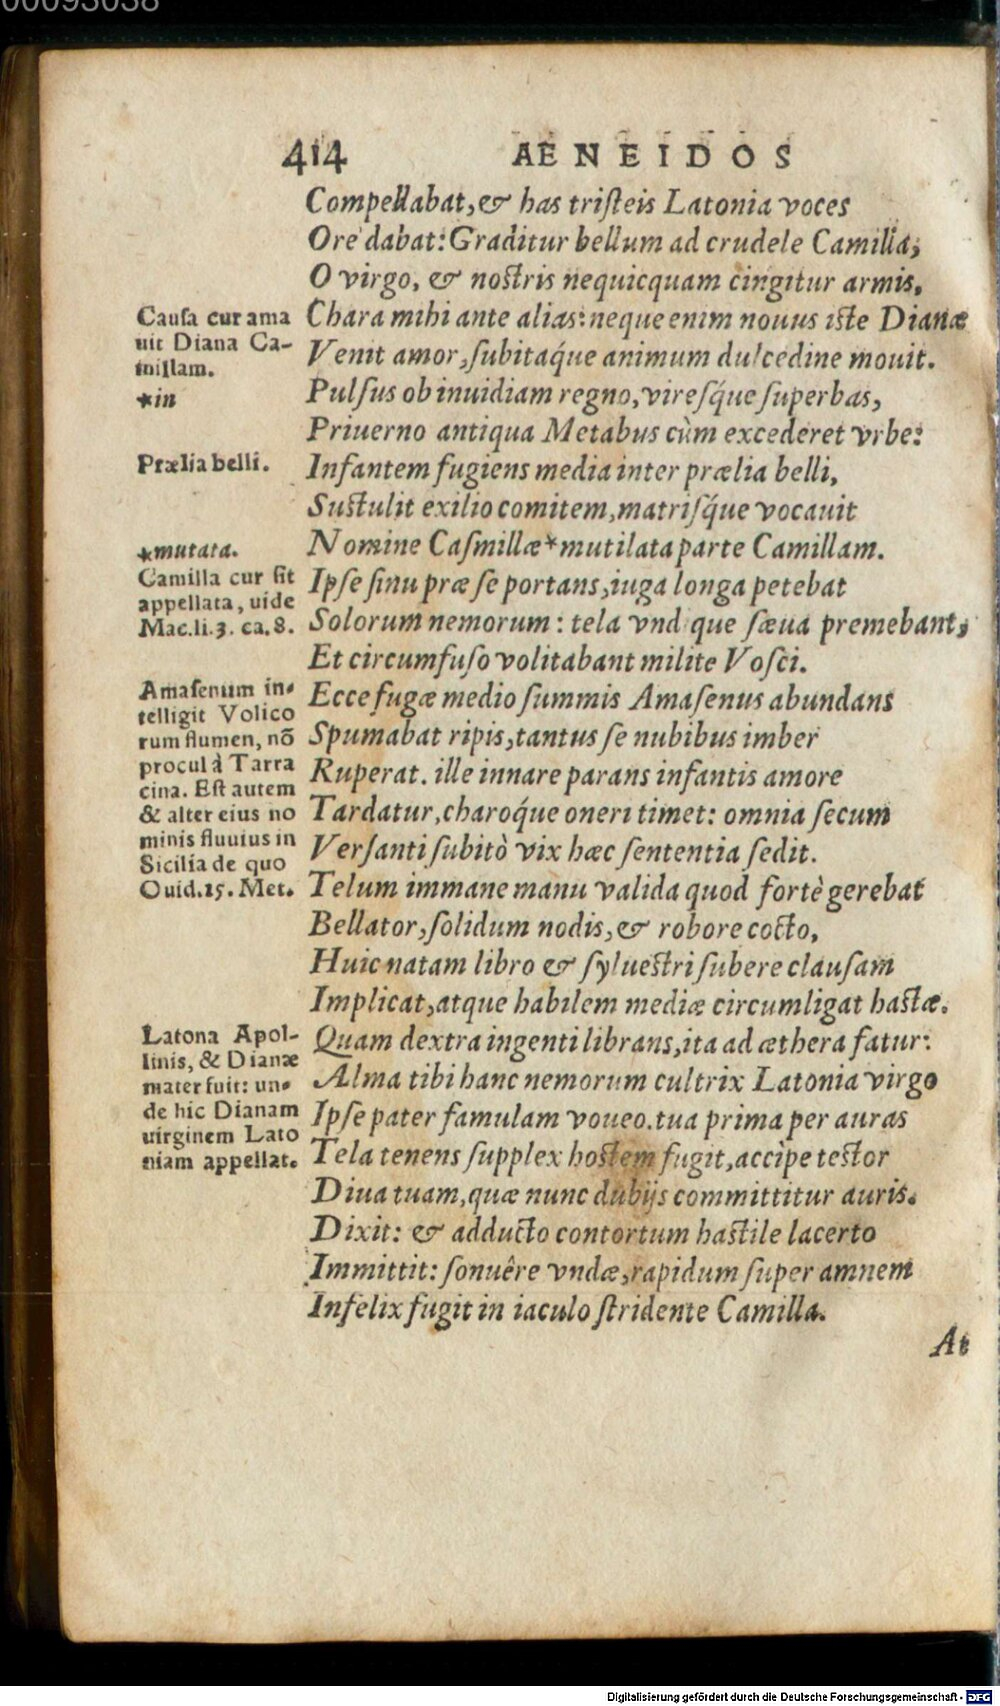 00093038
414 AENEIDOS
Compellabat, & has tristeis Latonia voces
Ore dabat: Graditur bellum ad crudele Camilla,
O virgo, & nostris nequicquam cingitur armis,
Chara mihi ante alias: neque enim nouus iste Dianæ
Venit amor, subitaq́ue animum dulcedine mouit.
Pulsus ob inuidiam regno, viresq́ue superbas,
Priuerno antiqua Metabus cùm excederet vrbe:
Infantem fugiens media inter prælia belli,
Sustulit exilio comitem, matrisq́ue vocauit
Nomine Casmillæ * mutilata parte Camillam.
Ipse sinu præ se portans, iuga longa petebat
Solorum nemorum: tela vndique sæua premebant,
Et circumfuso volitabant milite Vosci.
Ecce fugæ medio summis Amasenus abundans
Spumabat ripis, tantus se nubibus imber
Ruperat. ille innare parans infantis amore
Tardatur, charoq́ue oneri timet: omnia secum
Versanti subitò vix hæc sententia sedit.
Telum immane manu valida quod fortè gerebat
Bellator, solidum nodis, & robore cocto,
Huic natam libro & syluestri subere clausam
Implicat, atque habilem mediæ circumligat hastæ.
Quam dextra ingenti librans, ita ad æthera fatur:
Alma tibi hanc nemorum cultrix Latonia virgo
Ipse pater famulam voueo. tua prima per auras
Tela tenens supplex hostem fugit, accìpe testor
Diua tuam, quæ nunc dubijs committitur auris.
Dixit: & adducto contortum hastile lacerto
Immittit: sonuêre vndæ, rapidum super amnem
Infelix fugit in iaculo stridente Camilla.
At
Causa cur ama
uit Diana Ca-
millam.
*in
Prælia belli.
*mutata.
Camilla cur sit
appellata, uide
Mac.li.3. ca.8.
Amasenum in-
telligit Volico
rum flumen, nõ
procul à Tarra
cina. Est autem
& alter eius no
minis fluuius in
Sicilia de quo
Ouid.15. Met.
Latona Apol-
linis, & Dianæ
mater fuit: un-
de hic Dianam
uirginem Lato
niam appellat.
Digitalisierung gefördert durch die Deutsche Forschungsgemeinschaft - DFG